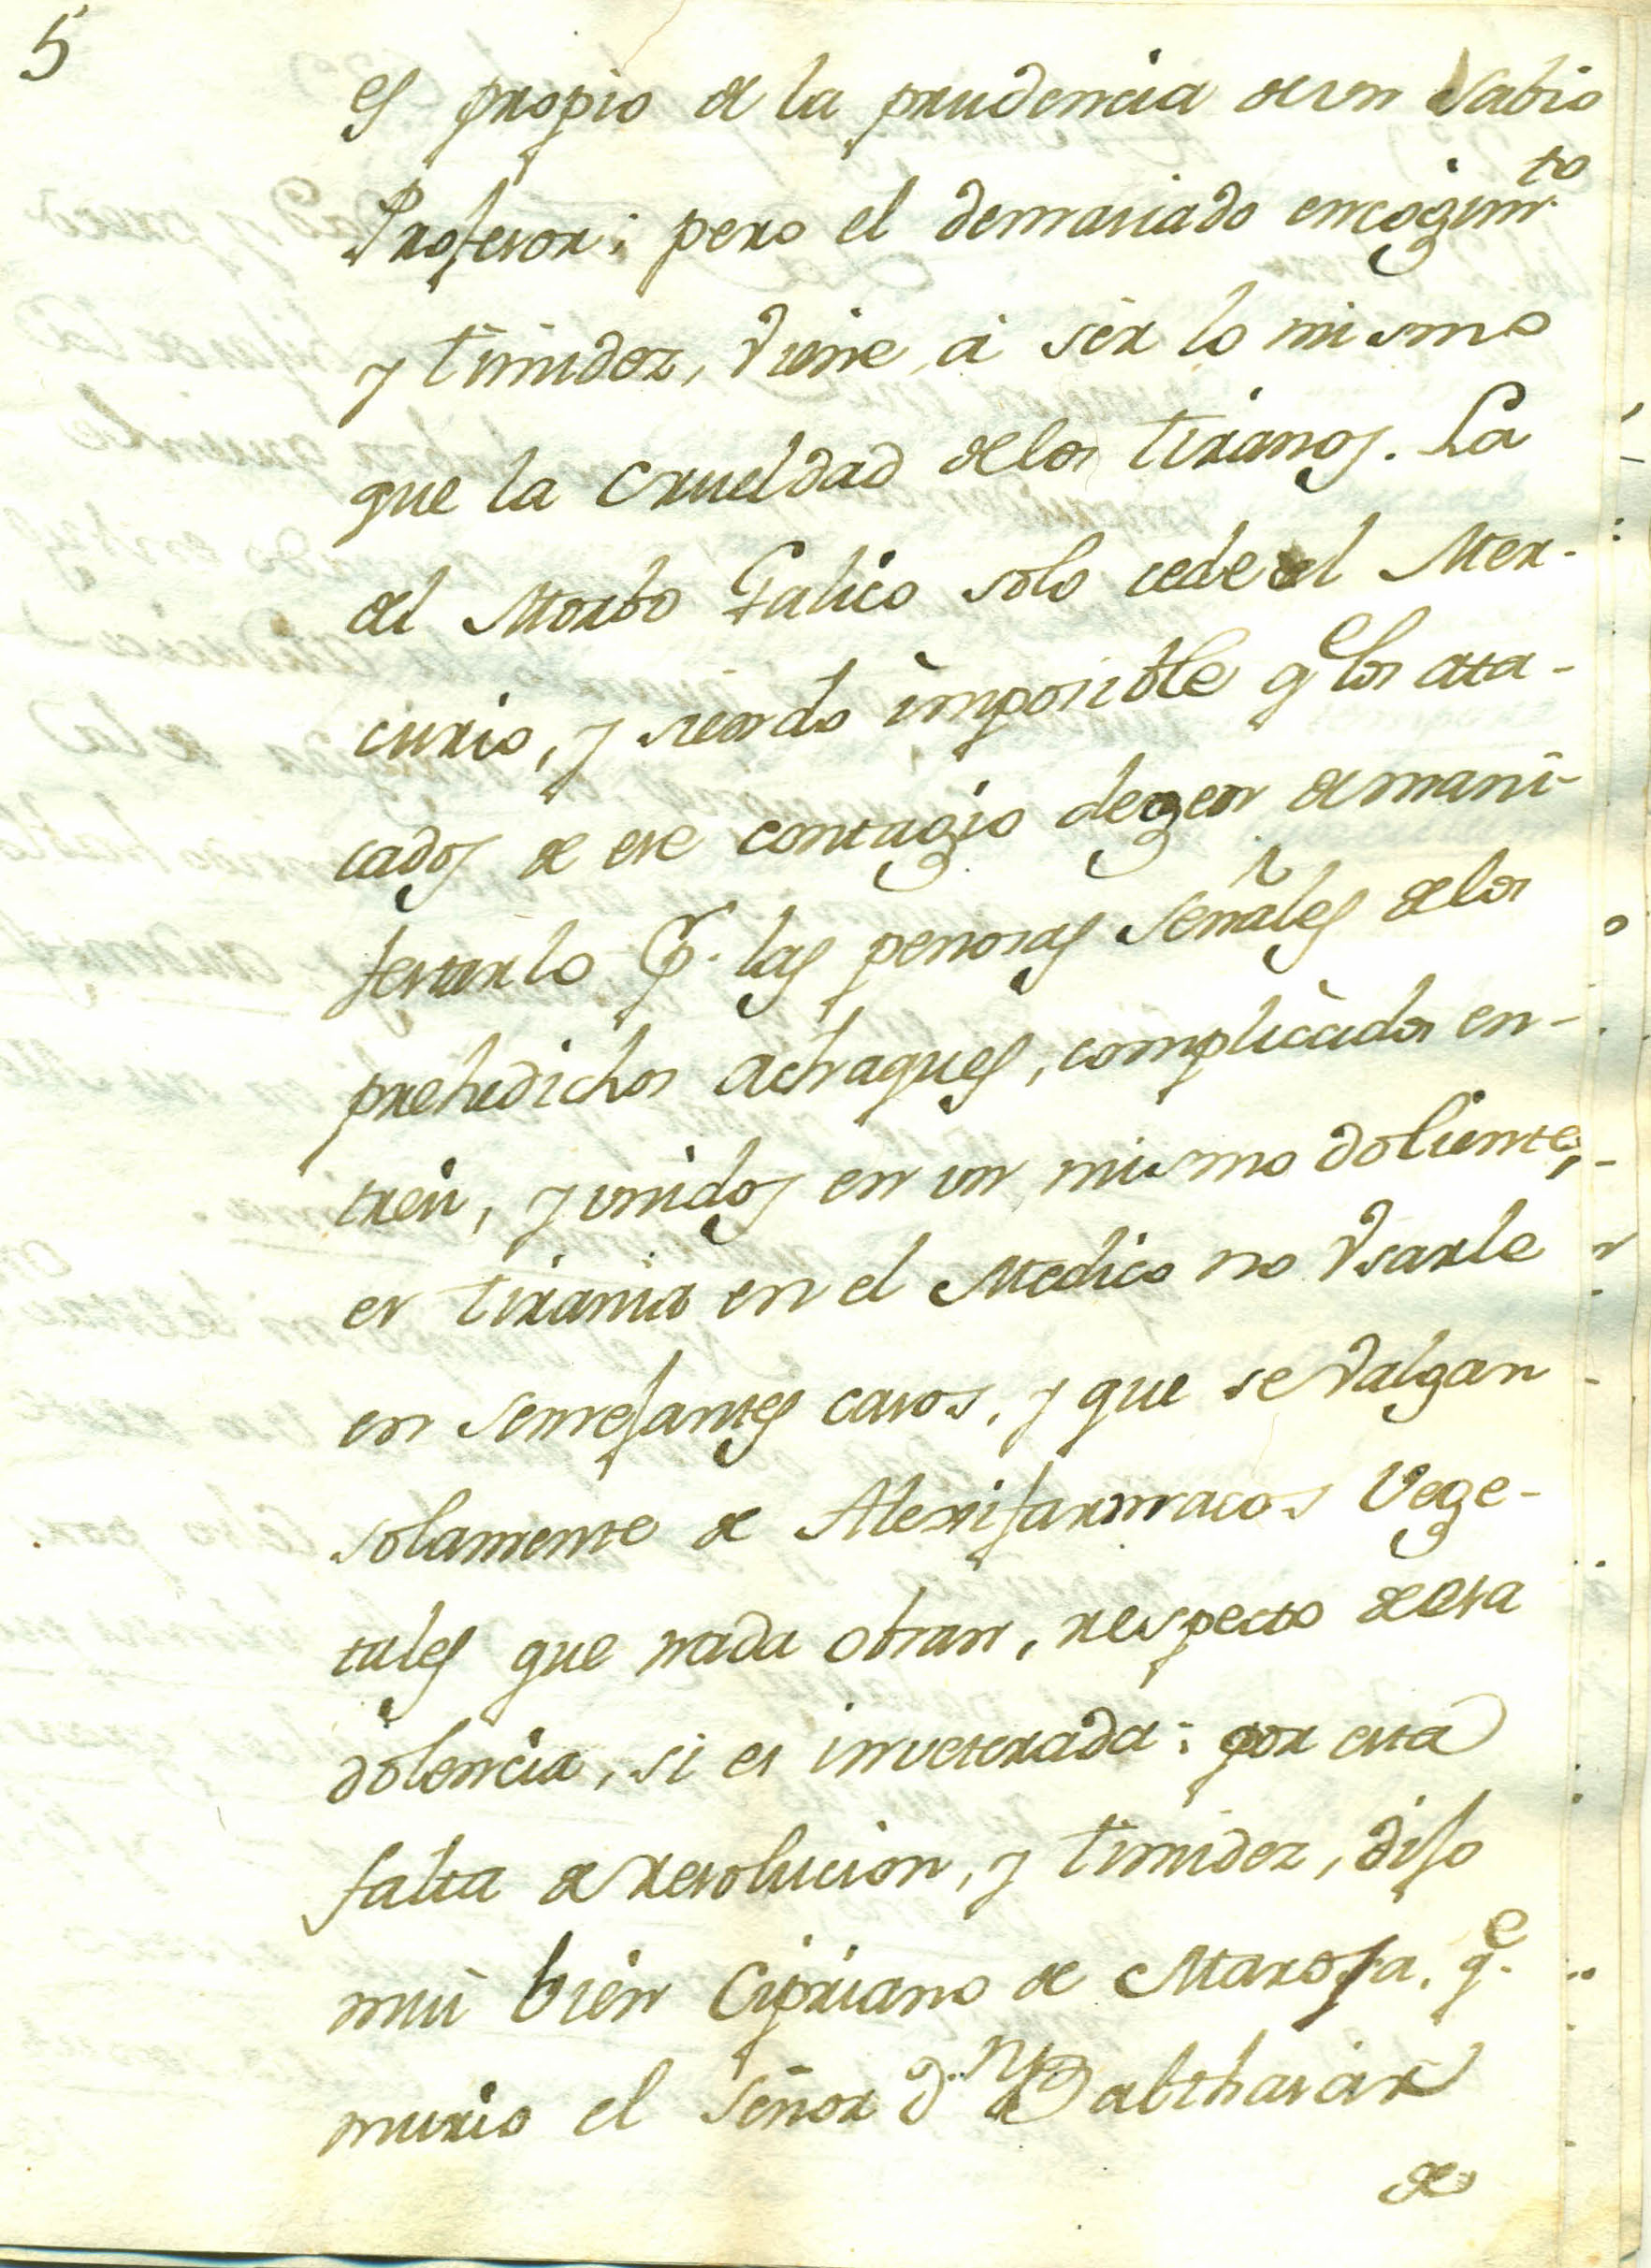 5
es propio de la prudencia de un Sabio
Profesor; pero el demasiado encogim.to
y timidez, viene, à sèr lo mismo
que la crueldad de los tiranos. La
del Morbo Galico solo cede el Mer-
curio, y siendo imposible qe los ata-
cados de ese contagio degen de mani-
festarlo p.r las penosas señales de los
prehedichos achaques, complicados en-
tresi, y unidos en un mismo doliente,
es tirania en el Medico no Usarle
en semejantes casos, y que se valgan
solamente de Alexifarmacos Vege-
tales que nada obran, respecto de esa
dolencia, si es inveterada: por esta
falta de resolucion, y timidez, dijo
mui bien Cipriano de Maroja, q.e
murio el Señor d.n Balthasàr
de